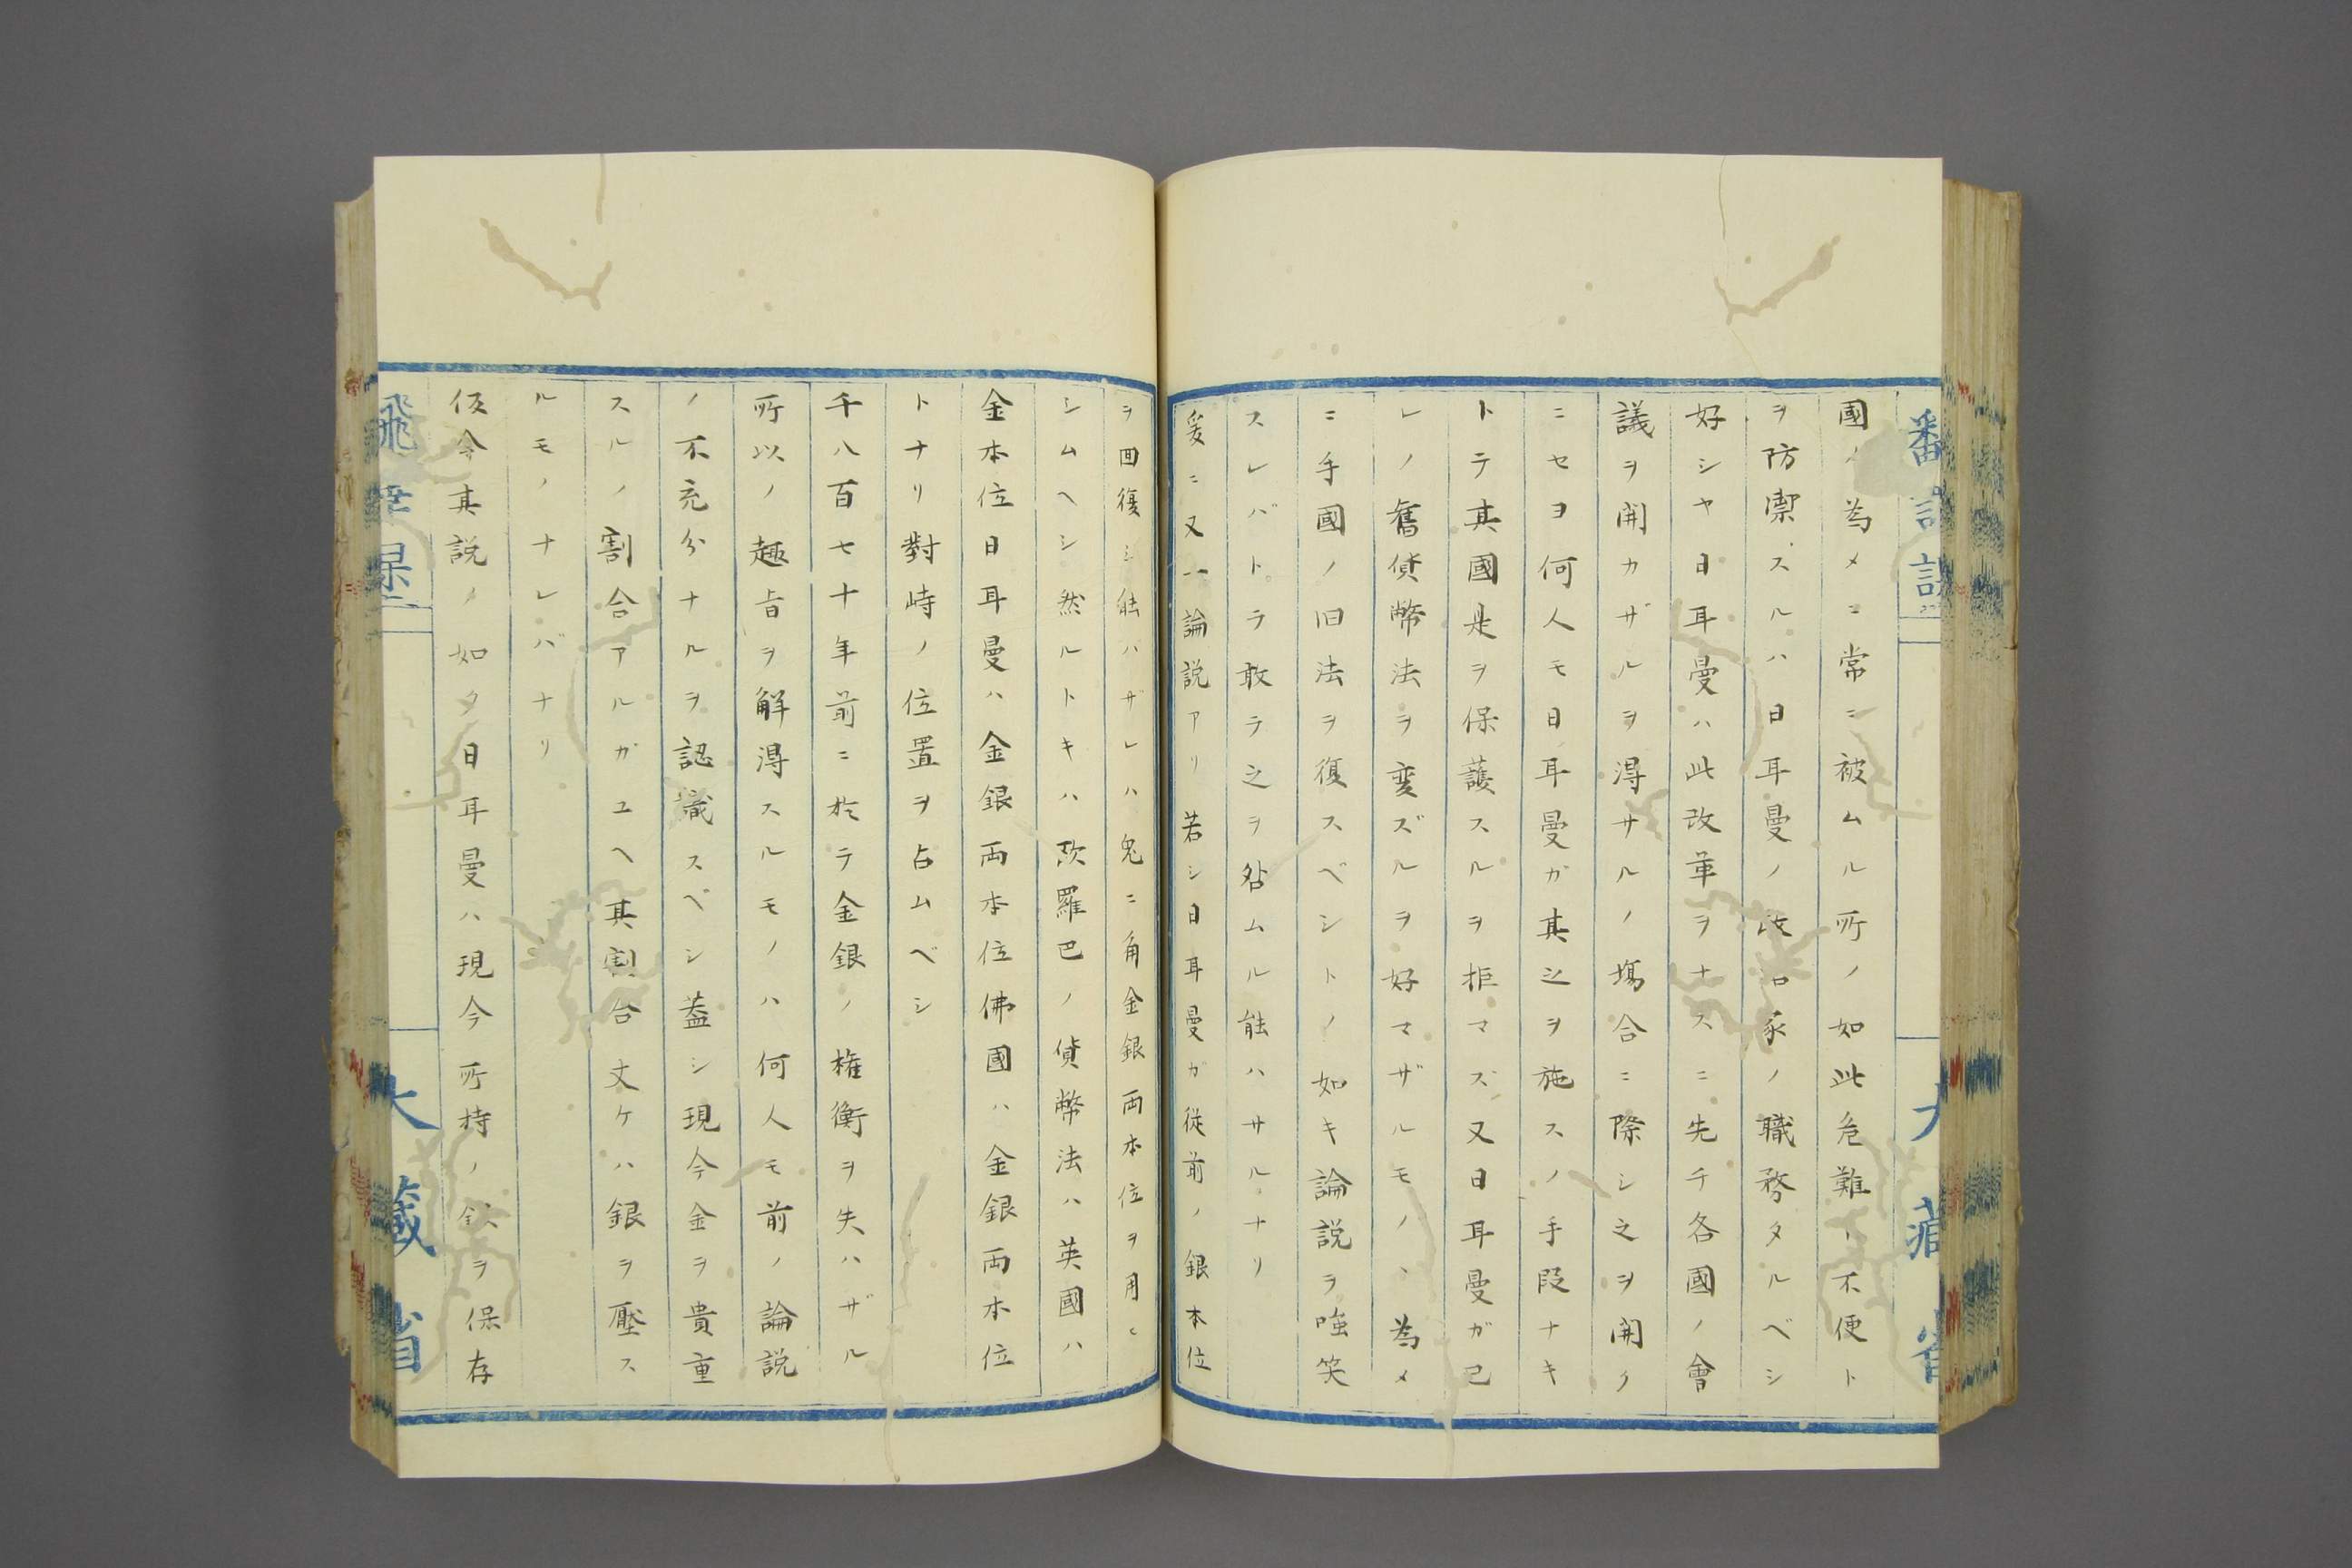 國ノ為メニ常ニ被ムル所ノ如此危難ト不便ト
ヲ防禦スルハ日耳曼ノ政口家ノ職務タルベシ
好シヤ日耳曼ハ此改革ヲナスニ先チ各國ノ會
議ヲ開カザルヲ得サルノ塲合ニ際シ之ヲ開ク
ニセヨ何人モ日耳曼ガ其之ヲ施スノ手段ナキ
トテ其國是ヲ保護スルヲ拒マズ又日耳曼ガ己
レノ舊貨幣法ヲ変ズルヲ好マザルモノヽ為メ
ニ手國ノ旧法ヲ復スベシトノ如キ論説ヲ嗤笑
スレバトテ敢テ之ヲ咎ムル能ハサルナリ
爰ニ又一論説アリ若シ日耳曼ガ従前ノ銀本位
ヲ回復シ能ハザレハ兎ニ角金銀両本位ヲ用ヒ
シムヘシ然ルトキハ欧羅巴ノ貨幣法ハ英國ハ
金本位日耳曼ハ金銀両本位佛國ハ金銀両本位
トナリ對峙ノ位置ヲ占ムベシ
千八百七十年前ニ於テ金銀ノ権衡ヲ失ハザル
所以ノ趣旨ヲ解得スルモノハ何人モ前ノ論説
ノ不充分ナルヲ認識スベシ蓋シ現今金ヲ貴重
スルノ割合アルガユヘ其割合丈ケハ銀ヲ壓ス
ルモノナレバナリ
仮令其説ノ如ク日耳曼ハ現今所持ノ銀ヲ保存
大藏省